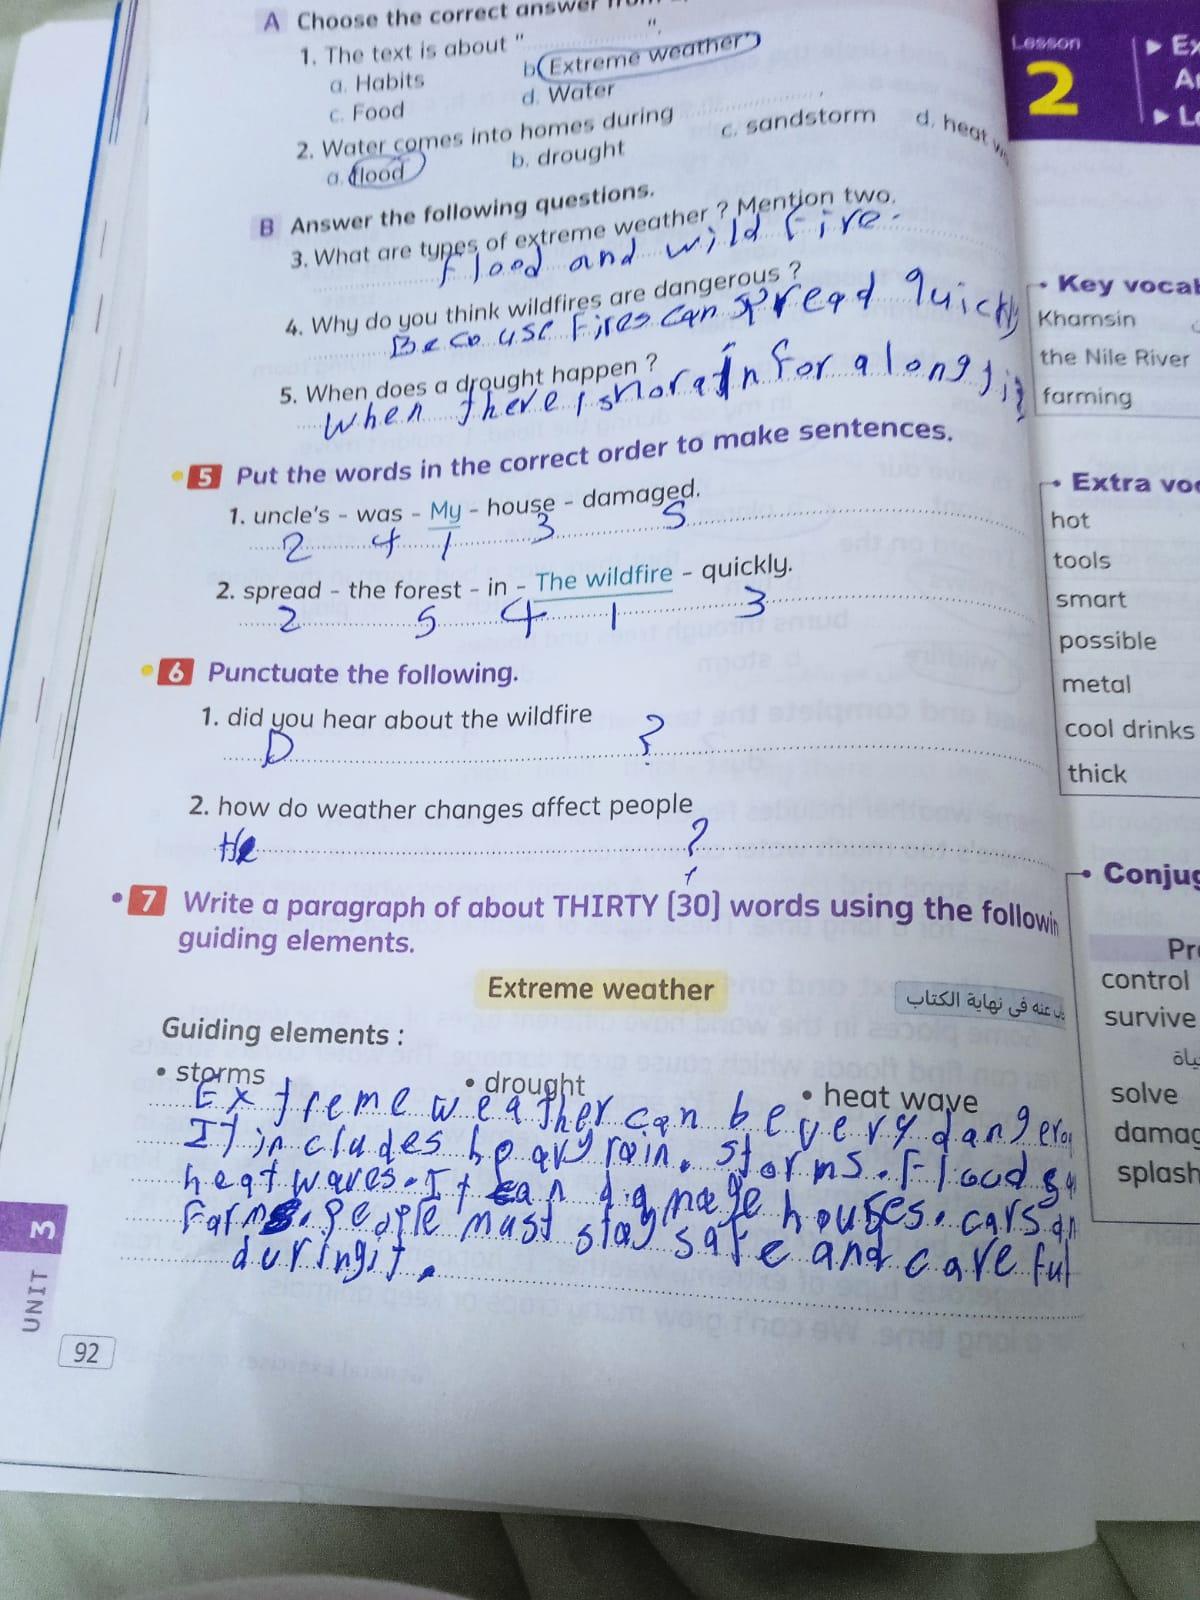 A Choose the correct answer
1. The text is about "..................".
a. Habits
b. Extreme weather
c. Food
d. Water
2. Water comes into homes during ..................,
a. flood
b. drought
c. sandstorm
d. heat
B Answer the following questions.
3. What are types of extreme weather ? Mention two.
Flood and wild fire.
4. Why do you think wildfires are dangerous ?
Becouse fires can spread quickly
5. When does a drought happen ?
when there isnorain for along
5 Put the words in the correct order to make sentences.
1. uncle's - was - My - house - damaged.
2 4 1 3 5
2. spread - the forest - in - The wildfire - quickly.
2 5 4 1 3
6 Punctuate the following.
1. did you hear about the wildfire
D ?
2. how do weather changes affect people
H ?
7 Write a paragraph of about THIRTY (30) words using the
guiding elements.
Extreme weather
عنه فى نهاية الكتاب
Guiding elements :
• storms
• drought
• heat wave
Extreme weather can be very
It includes heavy rain. storms. Flood
heat waves. It can damage houses. cars
Farms. People must stay safe and careful
during it.
UNIT 3
92
Lesson
2
• Key
Khamsin
the Nile River
farming
• Extra
hot
tools
smart
possible
metal
cool drinks
thick
control
survive
solve
splash